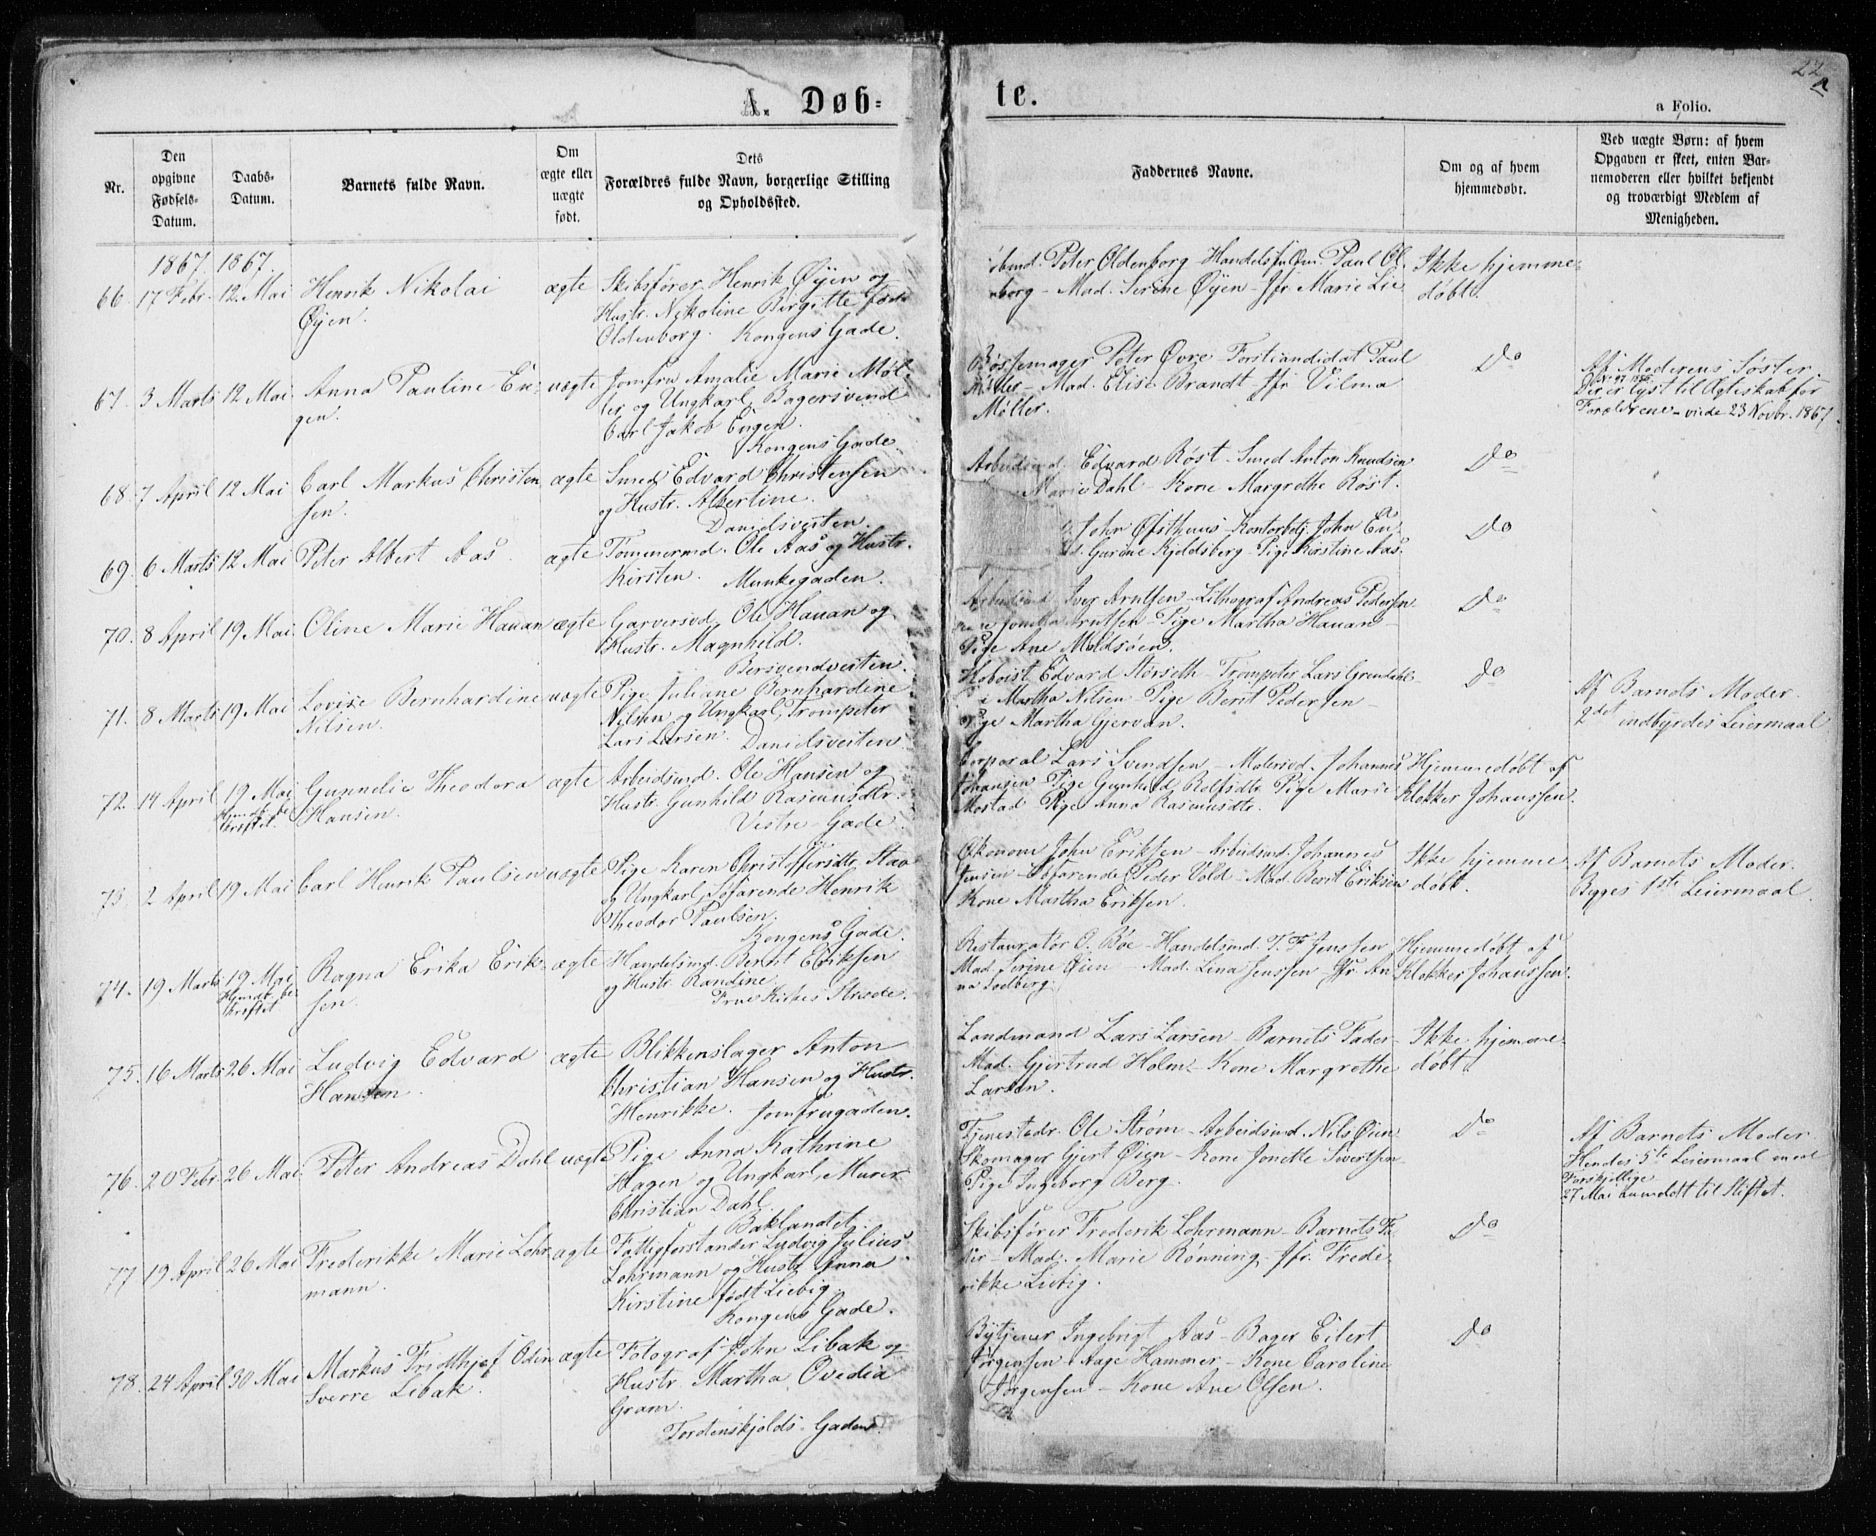 22
a
A. Døb=
te.
a Folio.
Nr.
Den opgivne Fødsels-Datum.
Daabs-Datum.
Barnets fulde Navn.
Om ægte eller uægte født.
Dets Forældres fulde Navn, borgerlige Stilling og Opholdssted.
Faddernes Navne.
Om og af hvem hjemmedøbt.
Ved uægte Børn: af hvem Opgaven er skeet, enten Barnemoderen eller hvilket bekjendt og troværdigt Medlem af Menigheden.
1867. 1867.
66 17 Febr. 12 Mai Henrik Nikolai ægte Skibsfører Henrik Øyen og
Øyen. Hustr. Nikoline Birgitte født
Oldenborg. Kongens Gade.
Peter Oldenborg - Paul Ol
nborg - Mad. Serine Øyen - Jfr Marie Lie
Ikke hjemme-
døbt.
67. 3 Marts 12 Mai Anna Pauline Eu- uægte Jomfru Amalie Marie Møl-
gen. ler og Ungkarl Bagersvend
Carl Jakob Eugen.
Kongens Gade.
Bøssemager Peter Øvre - Forstcandidat Paul
Møller - Mad. Elise Brandt - Jfr Vilma
Møller.
Do
Af Moderens Søster.
Der er lyst til Ægteskab for
Forældrene - viede 23 Novbr. 1867.
68. 7 April 12 Mai Carl Markus Christen ægte Smed Edvard Christensen
sen. og Hustr. Albertine.
Danidsveiten.
Arbeidsmd. Edvard Røst - Smed Anton Knudsen
Marie Dahl - Kone Margrethe Røst.
Do
69. 6 Marts 12 Mai Peter Albert Aas. ægte Tømmermd. Ole Aas og Hustr.
Kirsten. Munkegaden.
John Østhuus - Kontorbetj. John En
Gurine Kjeldsberg - Pige Kirstine Aas.
Do
70. 8 April 19 Mai Oline Marie Hauan ægte Garversvd. Ole Hauan og
Hustr. Magnhild.
Bersvendveiten.
Arbeidsmd. Iver Arntsen - Lithograf Andreas Pedersen
Arntsen - Pige Martha Hauan -
Pige Ane Moldsøen.
Do
71. 8 Marts 19 Mai Lovise Bernhardine uægte Pige Juliane Bernhardine
Nilsen. Nilsen og Ungkarl, Trompeter
Lars Larsen. Danidsveiten.
Hoboist Edvard Størseth - Trompeter Lars Grendahl
Martha Nilsen - Pige Berit Pedersen -
Pige Martha Gjervan.
Do
Af Barnets Moder.
2det indbyrdes Leiermaal
72. 14 April 19 Mai Gunnelie Theodora ægte Arbeidsmd. Ole Hansen og
Hjemdb. be-
kriftet. Hansen. Hustr. Gunhild Rasmusdtr.
Vestre Gade.
Corporal Lars Svendsen - Malersvd. Johannes
Johansen Pige Gunhild Rolfsdtr. Pige Marie
Mostad Pige Anna Rasmusdtr.
Hjemmedøbt af
Klokker Johanssen.
73. 2 April 19 Mai Carl Henrik Paulsen uægte Pige Karen Christoffersdtr. Stav
og Ungkarl, Søfarende Henrik
Theodor Paulsen.
Kongens Gade.
Økonom John Eriksen - Arbeidsmd. Johannes
Jensen - Søfarende Peder Vold - Mad. Berit Eriksen
Kone Martha Eriksen.
Ikke hjemme
døbt.
Af Barnets Moder.
Begges 1ste Leiermaal.
74. 19 Marts 19 Mai Ragna Erika Erik- ægte Handelsmd. Bernt Eriksen
Hjemdb. be-
kriftet. sen. og Hustr. Randine.
Frue Kirkes Stræde.
Restauratør O. Bøe - Handelsmd. T. F. Jenssen
Mad. Serine Øien - Mad. Lina Jenssen - Jfr. An
na Soelberg.
Hjemmedøbt af
Klokker Johanssen.
75. 16 Marts 26 Mai Ludvig Edvard ægte Blikkenslager Anton
Hansen. Christian Hansen og Hustr.
Henrikke. Jomfrugaden.
Landmand Lars Larsen - Barnets Fader -
Mad. Gjertrud Holm - Kone Margrethe
Larsen.
Ikke hjemme
døbt.
76. 20 Febr. 26 Mai Peter Andreas Dahl uægte Pige Anna Kathrine
Hagen og Ungkarl, Murer
Christian Dahl.
Baklandet.
Tjenestedr. Ole Strøm - Arbeidsmd. Nils Øien
Skomager Gjert Øien - Kone Jonette Sivertsen
Pige Ingeborg Berg.
Do
Af Barnets Moder.
Hendes 5te Leiermaal med
Forskjellige
27 Mai anmeldt til Stiftet.
77 19 April 26 Mai Frederikke Marie Lohr ægte Fattigforstander Ludvig Julius
mann. Lohrmann og Hustr. Anna
Kirstine født Liebig.
Kongens Gade.
Skibsfører Frederik Lohrmann - Barnets Fa
der - Mad. Marie Rønning - Jfr. Frede
rikke Liebig.
Do
78. 24 April 30 Mai Markus Fridthjof Odin ægte Fotograf John Libak og
Sverre Libak. Hustr Martha Ovedia
Gram.
Tordenskjolds Gaden.
Bytjener Ingebrigt Aas - Bager Eilert
Jørgensen - Aage Hammer - Kone Caroline
Jørgensen - Kone Ane Olsen.
Do